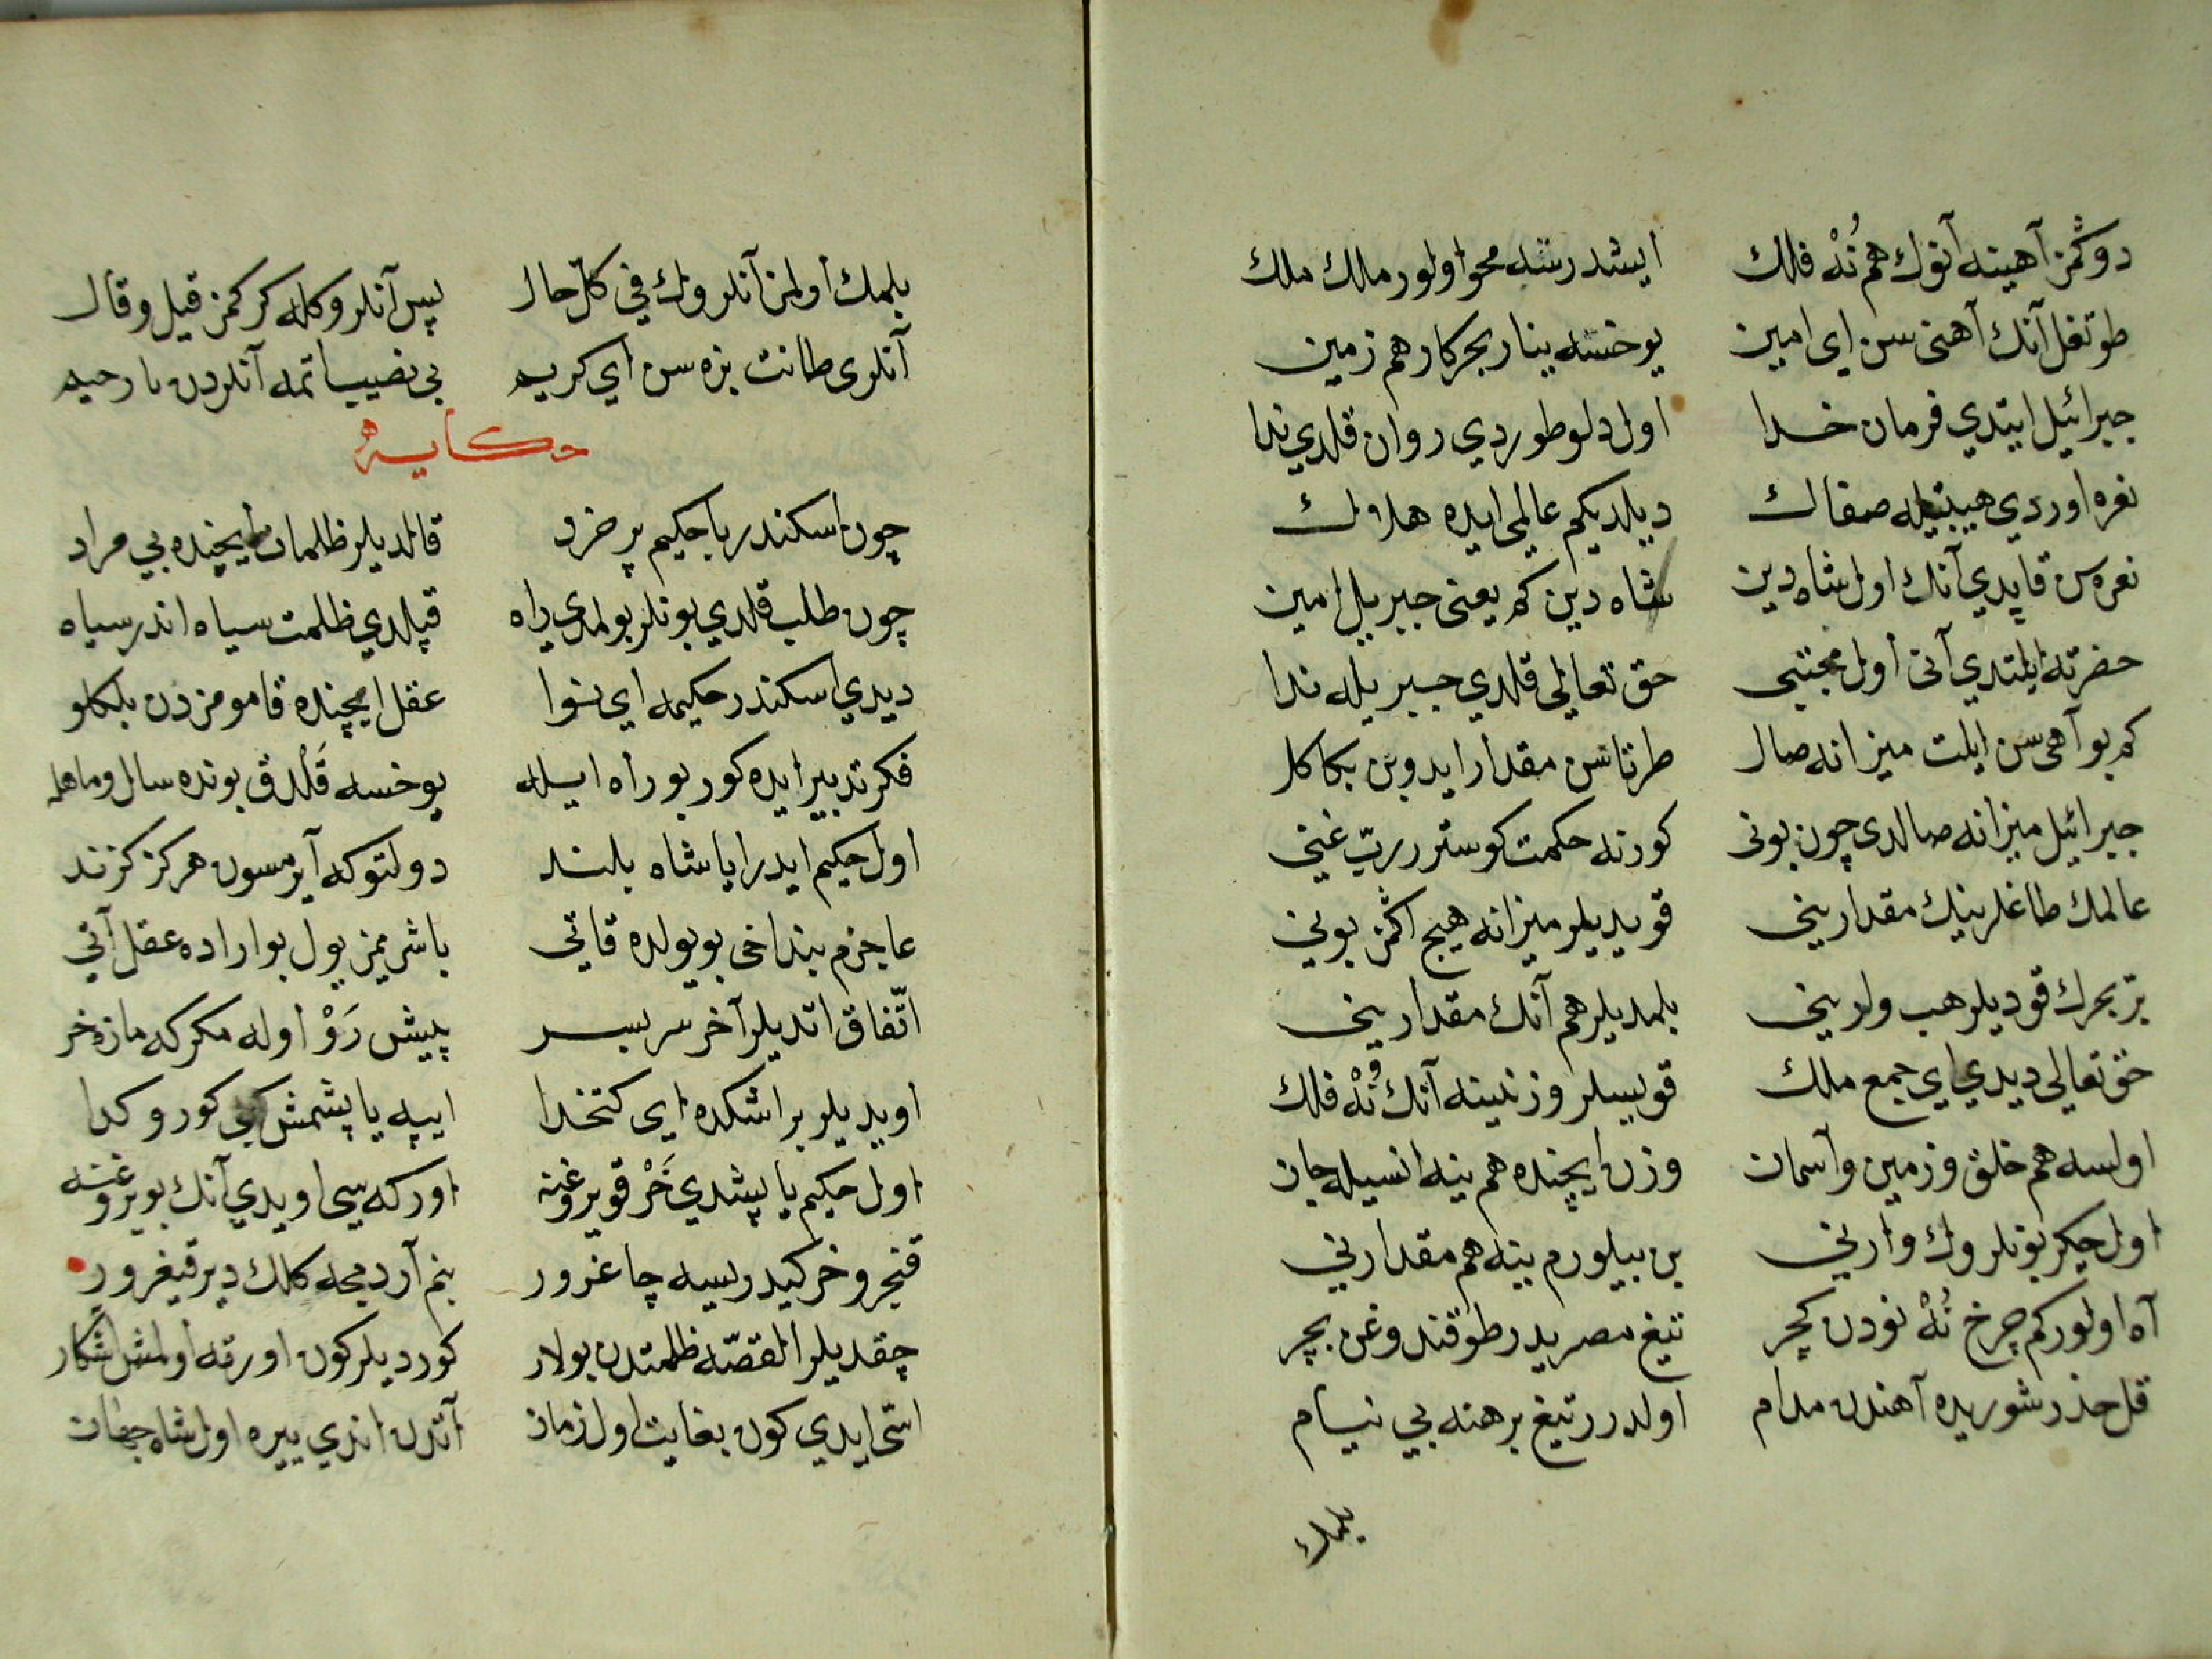 دوكمز آهينه آنوك هم نُهْ فلك ايشدرسه محو اولور ملك ملك
طوتغل آنك آهنى سن اى امين يوخسه ينار بحر كار هم زمين
جبرائيل ايتدي فرمان خدا اول دلو طوردي روان قلدي ندا
نعره اوردي هيبتيله صفاك ديلديكم عالمى ايده هلاك
نعره‌سن قاپدي آنك اول شاه دين شاه دين كم يعنى جبريل امين
حضرته ايلتدي آنى اول مجتبى حق تعالى قلدي جبريله ندا
كم بو آهى سن ايلت ميزانه صال طرتاسن مقدار ايدوبن بكا كل
جبرائيل ميزانه صالدى چون بونى كورنه حكمت كوستررربّ غنى
عالمك طاغلرينك مقدارينى قويديلر ميزانه هيچ اكمز بونى
برّ بحرك قوديلر هب وارينى بلمديلر هم آنك مقدارينى
حق تعالى ديدي اي جمع ملك قويسلر وزنينه آنك نُهْ فلك
اولسه هم خلق و زمين و آسمان وزن ايچنده هم ينه انسيله جان
اول چكر بونلروك وارنى بن بيلورم ينه هم مقدارنى
آه اولوركم چرخ نُهْ نودن كچر تيغ مصريدر طوقندوغن بچر
قل حذر شوريده آهندن مدام اولدر تيغ برهنه بي نيام
بلمك
بلمك اولمز آنلروك في كلّ حال پس آنلروكله كركمز قيل و قال
آنلرى طانت بزه سن اي كريم بي نصيب اتمه آنلردن يا رحيم
حكايه
چون اسكندر با حكيم پر خرد قالديلر ظلمات ايچنده بي مراد
چون طلب قلدي بونلر بولمدى راه قپلدي ظلمت سياه اندر سياه
ديدي اسكندر حكيمه اي نوا عقل ايچنده قامومزدن بلكلو
فكر تدبير ايده كور بو راه ايله يوخسه قَلْدق بونده سال و ماهله
اول حكيم ايدر ايا شاه بلند دولتوكه آيرمسون هركز كزند
عاجزم بنداخى بو يولده قاتى باشرمز يول بو اراده عقل آتي
اتّفاق اتديلر آخر سربسر پيش رَوْ اوله مكركه ماده خر
اويديلر براشكده اى كتخدا ايپه ياپشمش كبى كور و كدا
اول حكيم ياپشدي خَرْ قويروغنه اوركه‌سي اويدي آنك بويروغنه
قنجرو خر كيدرسيه چاغرور بنم آردمجه كلك دير قيغرور
چقديلر القصّه ظلمتدن بولار كورديلر كون اورته اولمش اشكار
اسّى ايدي كون بغايت اول زمان آتدن اندي ييره اول شاه جهان